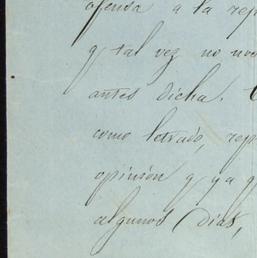 ofensa a la rep
y tal vez no no
antes dicha.
como letrado, rep
opinión y ya q
algunos dias,